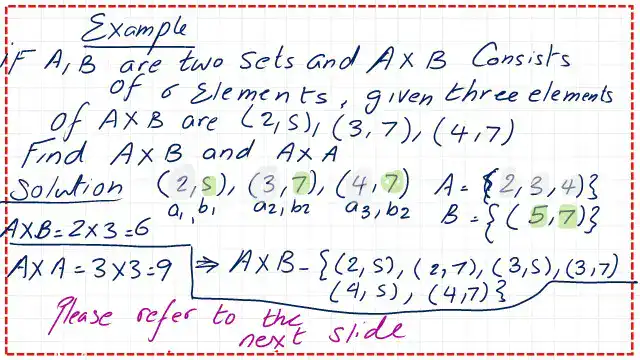 Example
IF A, B are two sets and A×B Consists
of 6 Elements, given three elements
of A×B are (2,5), (3,7), (4,7)
Find A×B and A×A
Solution (2,5), (3,7), (4,7) A = {2,3,4)}
a1, b1 a2, b2 a3, b2 B = {(5,7)}
A×B=2×3=6
A×A=3×3=9 ⇒ A×B = {(2,5), (2,7), (3,5), (3,7)
(4,5), (4,7)}
Please refer to the
next slide